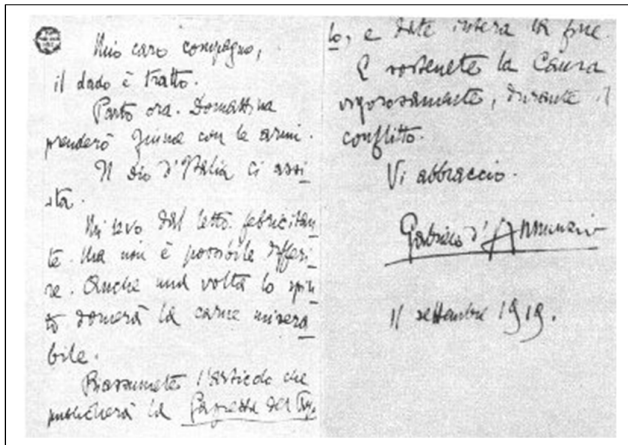 Mio caro compagno,
il dado è tratto.
Parto ora. Domattina
prenderò Fiume con le armi.
Il dio d'Italia ci assi-
sta.
Mi levo dal letto febricitan-
te. Ma non è possibile differi-
re. Anche una volta lo spiri-
to domerà la carne misera-
bile.
Riassumete l'articolo che
pubblicherà la Gazzetta del Popo-
lo, e date intera la fine.
E sostenete la Causa
vigorosamente, durante il
conflitto.
Vi abbraccio.
Gabriele d'Annunzio
11 settembre 1919.